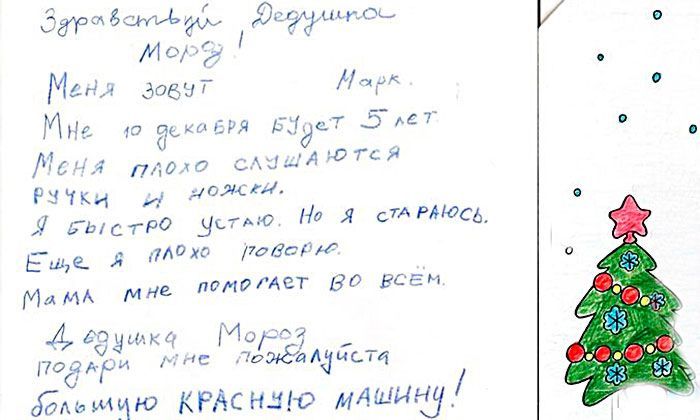 Здравствуй Дедушка
Мороз!
Меня зовут Марк.
Мне 10 декабря будет 5 лет.
Меня плохо слушаются
ручки и ножки.
Я быстро устаю. Но я стараюсь.
Еще я плохо говорю.
Мама мне помогает во всём.
Дедушка Мороз
подари мне пожалуйста
большую КРАСНУЮ МАШИНУ!